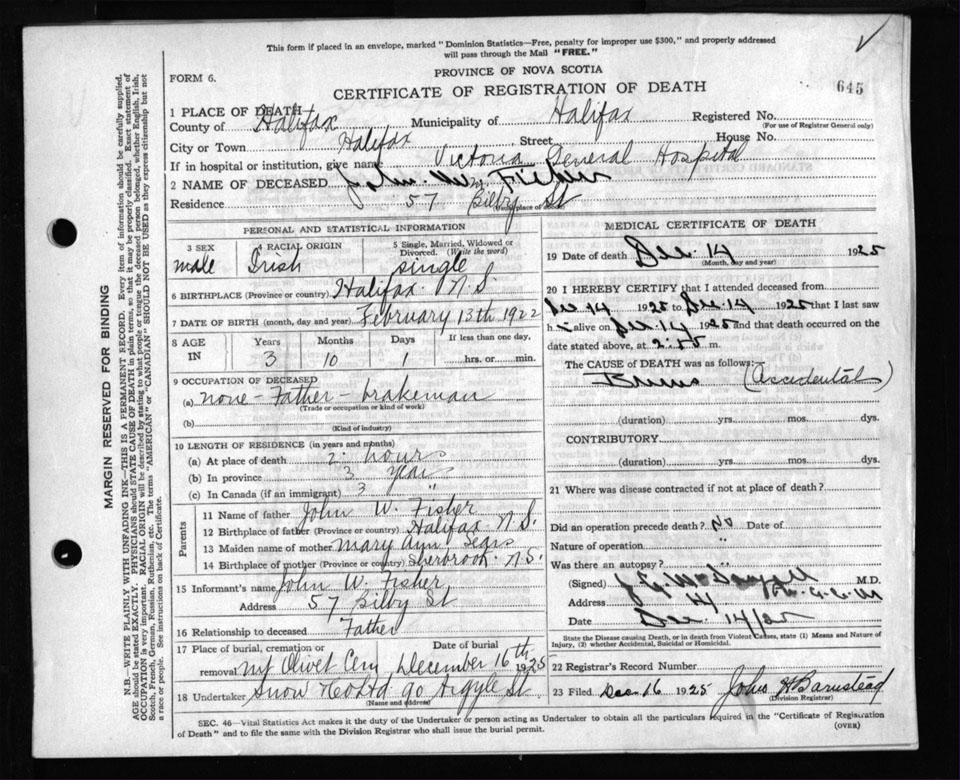 This form if placed in an envelope, marked "Dominion Statistics—Free, penalty for improper use $300," and properly addressed
will pass through the Mail "FREE."
FORM 6.
PROVINCE OF NOVA SCOTIA
645
CERTIFICATE OF REGISTRATION OF DEATH
1 PLACE OF DEATH
County of Halifax Municipality of Halifax Registered No.
(For use of Registrar General only)
City or Town Halifax Street House No.
If in hospital or institution, give name Victoria General Hospital
2 NAME OF DECEASED John Wm Fisher
Residence 57 St
(Usual place of abode)
PERSONAL AND STATISTICAL INFORMATION
3 SEX 4 RACIAL ORIGIN 5 Single, Married, Widowed or Divorced. (Write the word)
male Irish single
6 BIRTHPLACE (Province or country) Halifax N.S.
7 DATE OF BIRTH (month, day and year) February 13th 1922
8 AGE IN Years Months Days If less than one day,
3 10 1 hrs. or min.
9 OCCUPATION OF DECEASED
(a) none - Father - brakeman
(Trade or occupation or kind of work)
(b)
(Kind of industry)
10 LENGTH OF RESIDENCE (in years and months)
(a) At place of death 2 hours
(b) In province 3 years
(c) In Canada (if an immigrant) 3 "
Parents
11 Name of father John W. Fisher
12 Birthplace of father (Province or country) Halifax N.S.
13 Maiden name of mother Mary Ann Sears
14 Birthplace of mother (Province or country) Sherbrook N.S.
15 Informant's name John W. Fisher
Address 57 St
16 Relationship to deceased Father
17 Place of burial, cremation or removal Date of burial
Mt Olivet Cem December 16th 1925
18 Undertaker Snow & Co Ltd 90 Argyle St
(Name and address)
MEDICAL CERTIFICATE OF DEATH
19 Date of death Dec. 14 1925
(Month, day and year)
20 I HEREBY CERTIFY that I attended deceased from
Dec 14 1925 to Dec. 14 1925 that I last saw
h alive on Dec. 14 1925 and that death occurred on the
date stated above, at m.
The CAUSE OF DEATH was as follows:
Burns (Accidental)
(duration) yrs. mos. dys.
CONTRIBUTORY
(duration) yrs. mos. dys.
21 Where was disease contracted if not at place of death?
Did an operation precede death? No Date of
Nature of operation "
Was there an autopsy? "
(Signed) M.D.
Address
Date Dec. 14/25
State the Disease causing Death, or in death from Violent Causes, state (1) Means and Nature of
Injury, (2) whether Accidental, Suicidal or Homicidal.
22 Registrar's Record Number
23 Filed Dec 16 1925 John H Barnstead
(Division Registrar)
SEC. 46—Vital Statistics Act makes it the duty of the Undertaker or person acting as Undertaker to obtain all the particulars required in the "Certificate of Registration
of Death" and to file the same with the Division Registrar who shall issue the burial permit.
(OVER)
MARGIN RESERVED FOR BINDING
N.B.—WRITE PLAINLY WITH UNFADING INK—THIS IS A PERMANENT RECORD. Every item of information should be carefully supplied.
AGE should be stated EXACTLY. PHYSICIANS should STATE CAUSE OF DEATH in plain terms, so that it may be properly classified. Exact statement of
OCCUPATION is very important. RACIAL ORIGIN will be described by stating to what people or tongue the deceased person belonged, whether English, Irish,
Scotch, French, German, Russian, Ruthenian, etc. The terms "AMERICAN" or "CANADIAN" SHOULD NOT BE USED as they express citizenship but not
a race or people. See instructions on back of Certificate.